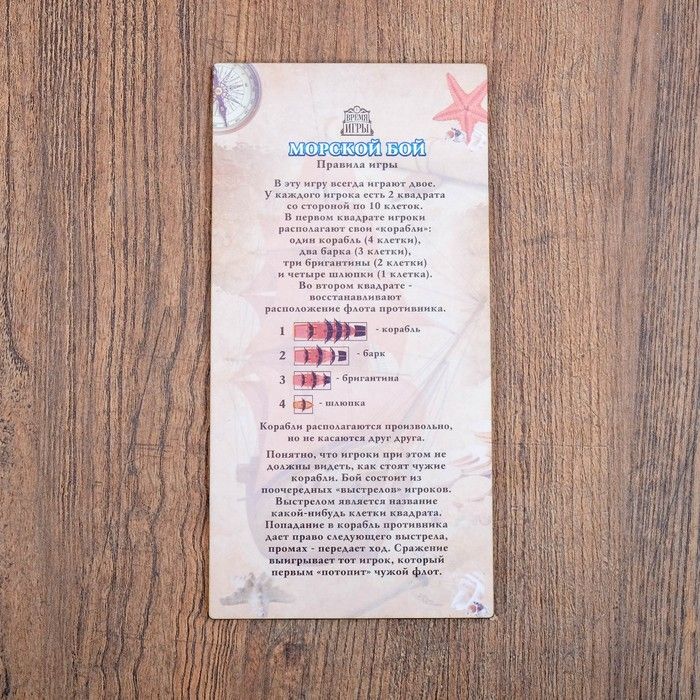 ВРЕМЯ
ИГРЫ
МОРСКОЙ БОЙ
Правила игры
В эту игру всегда играют двое.
У каждого игрока есть 2 квадрата
со стороной по 10 клеток.
В первом квадрате игроки
располагают свои «корабли»:
один корабль (4 клетки),
два барка (3 клетки),
три бригантины (2 клетки)
и четыре шлюпки (1 клетка).
Во втором квадрате -
восстанавливают
расположение флота противника.
1 - корабль
2 - барк
3 - бригантина
4 - шлюпка
Корабли располагаются произвольно,
но не касаются друг друга.
Понятно, что игроки при этом не
должны видеть, как стоят чужие
корабли. Бой состоит из
поочередных «выстрелов» игроков.
Выстрелом является название
какой-нибудь клетки квадрата.
Попадание в корабль противника
дает право следующего выстрела,
промах - передает ход. Сражение
выигрывает тот игрок, который
первым “потопит” чужой флот.